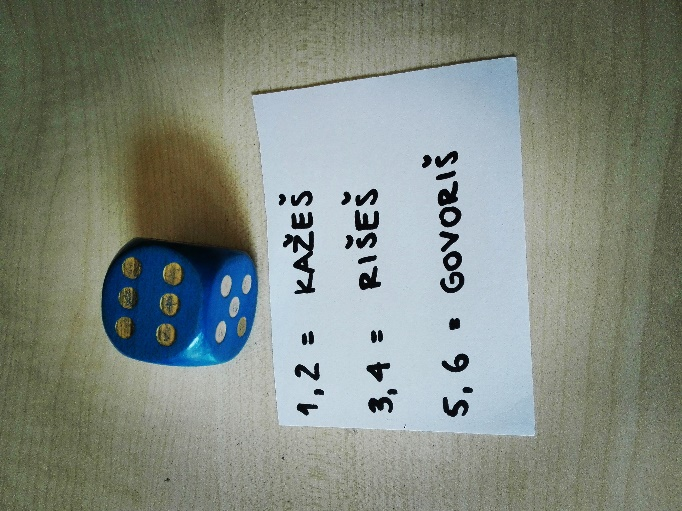 1, 2 = KAŽEŠ
3, 4 = RIŠEŠ
5, 6 = GOVORIŠ